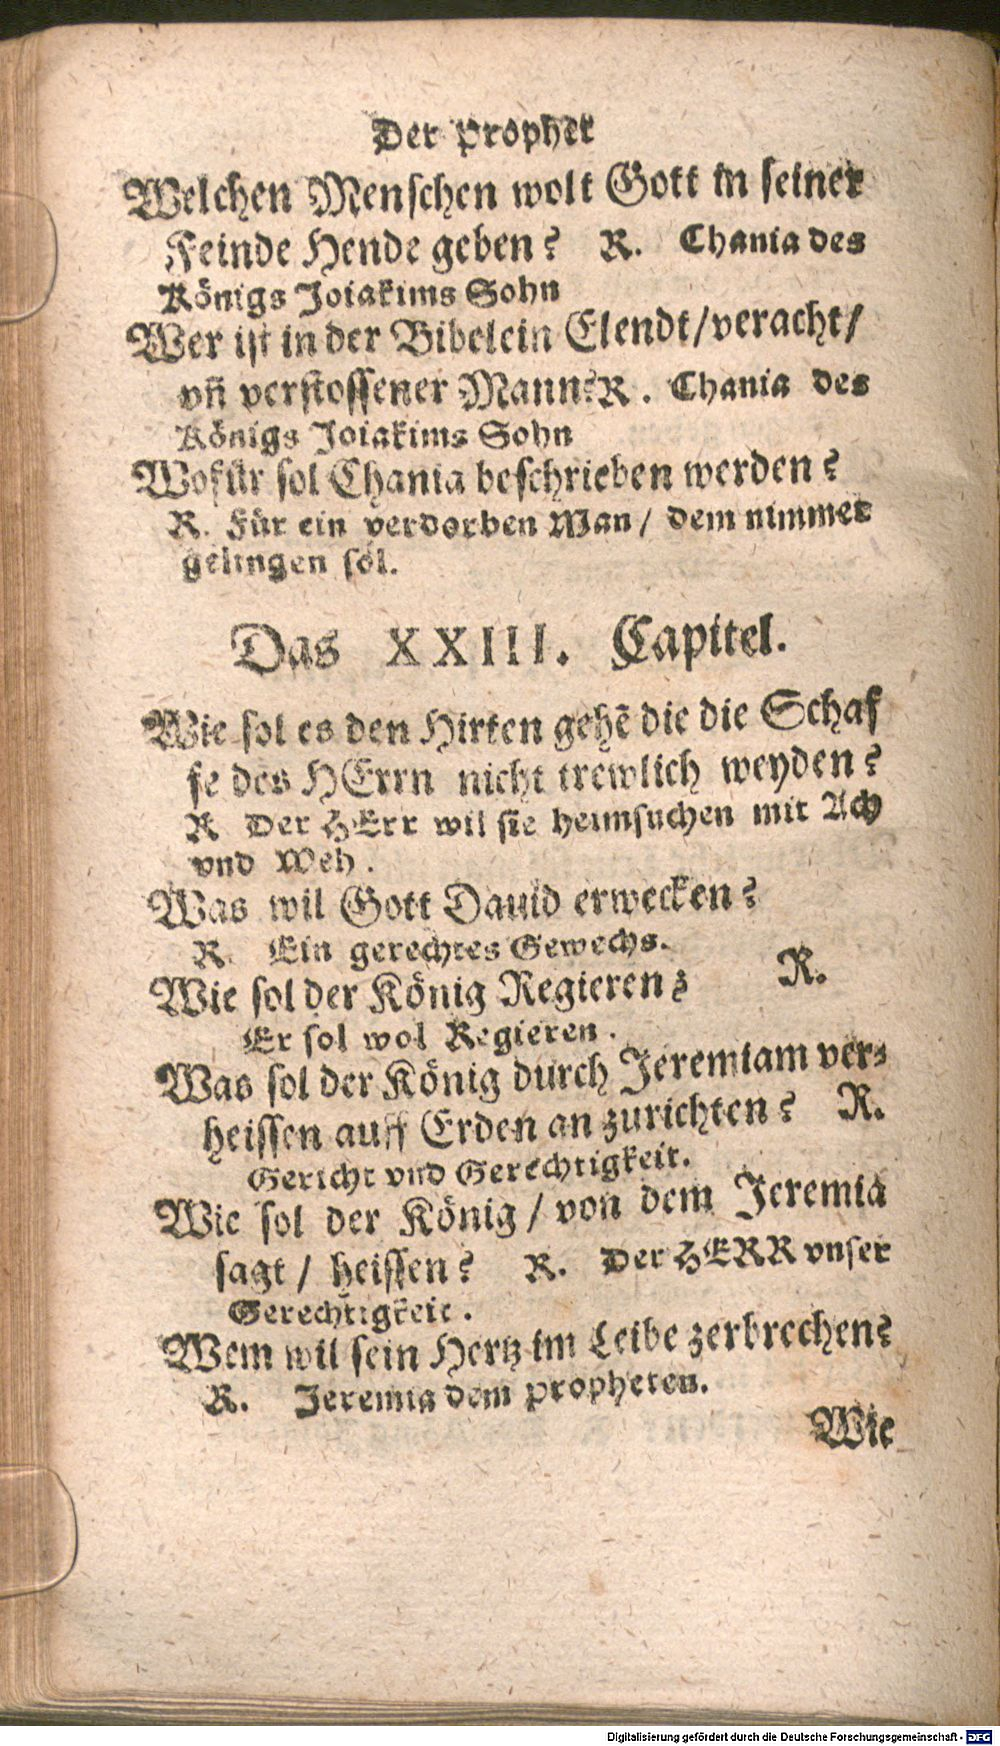 Der Prophet
Welchen Menschen wolt Gott in seiner
Feinde Hende geben? R. Chania des
Königs Joiakims Sohn
Wer ist in der Bibel ein Elendt/veracht/
vñ verstossener Mann? R. Chania des
Königs Joiakims Sohn
Wofür sol Chania beschrieben werden?
R. Für ein verdorben Man / dem nimmer
gelingen sol.
Das XXIII. Capitel.
Wie sol es den Hirten gehē die die Schaf
fe des HErrn nicht trewlich weyden?
R Der HErr wil sie heimsuchen mit Ach
vnd Weh.
Was wil Gott Dauid erwecken?
R. Ein gerechtes Gewechs.
Wie sol der König Regieren? R.
Er sol wol Regieren.
Was sol der König durch Jeremiam ver-
heissen auff Erden an zurichten? R.
Gericht vnd Gerechtigkeit.
Wie sol der König / von dem Jeremia
sagt / heissen? R. Der HERR vnser
Gerechtigkeit.
Wem wil sein Hertz im Leibe zerbrechen?
R. Jeremia dem Propheten.
Wie
Digitalisierung gefördert durch die Deutsche Forschungsgemeinschaft - DFG